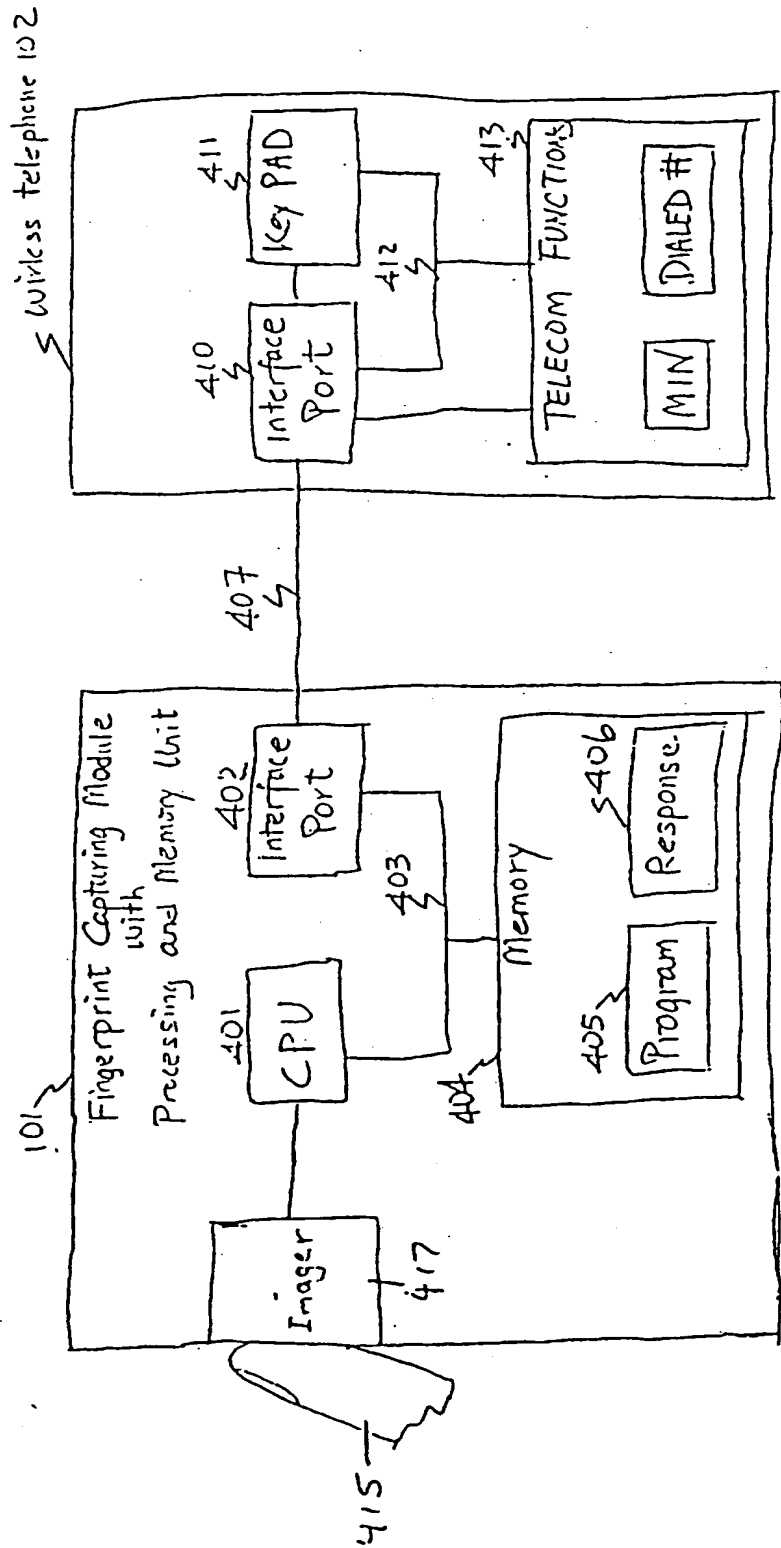 Wirless telephone 102
101
Fingerprint Capturing Module
with
Processing and Memory Unit
415
Imager
417
401
CPU
402
Interface
Port
403
404
Memory
405
Program
406
Response
407
410
Interface
Port
411
Key PAD
412
413
TELECOM FUNCTIONS
MIN
DIALED #